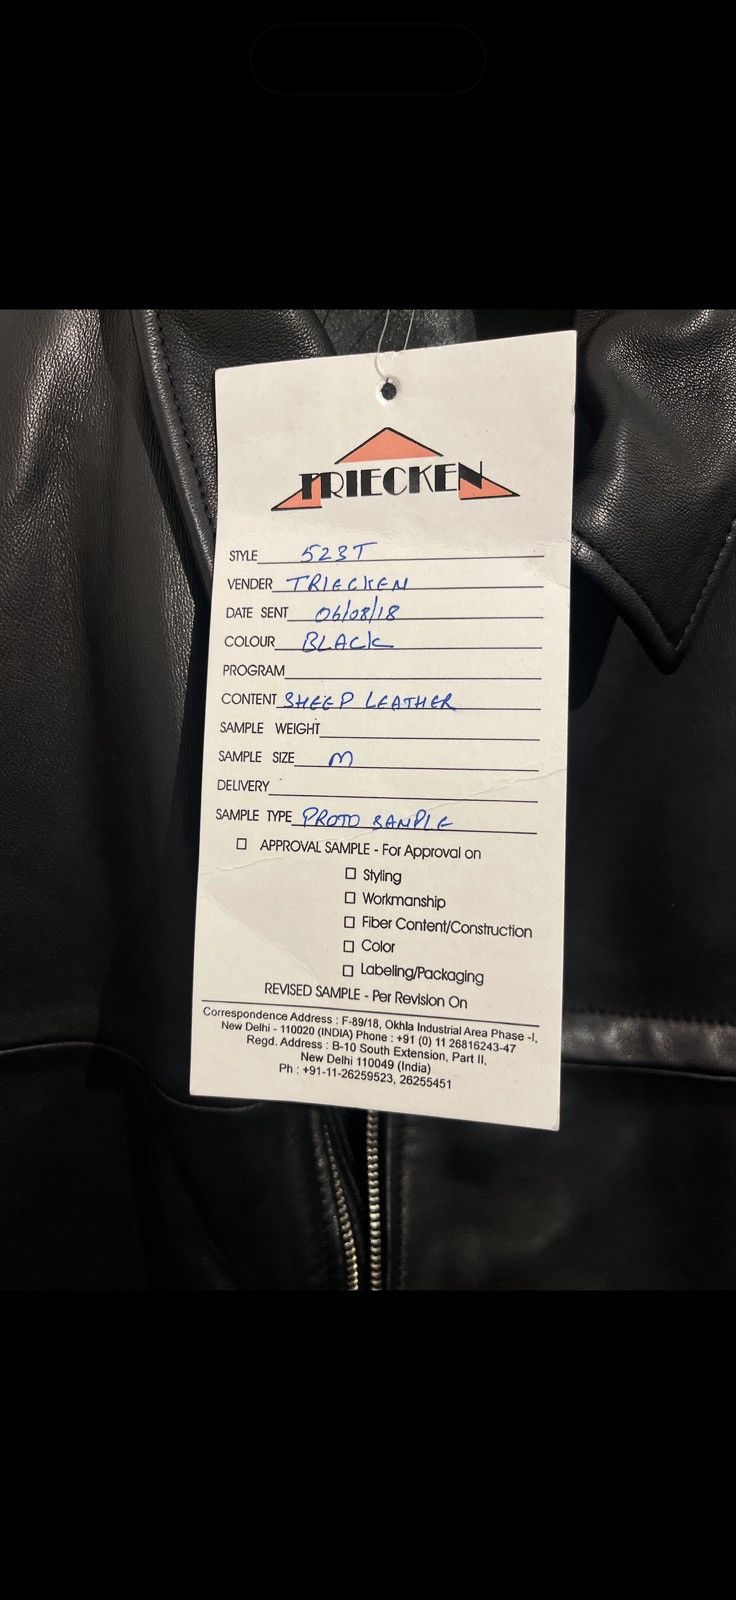 TRIECKEN
STYLE 523T
VENDER TRIECKEN
DATE SENT 06/08/18
COLOUR BLACK
PROGRAM
CONTENT SHEEP LEATHER
SAMPLE WEIGHT
SAMPLE SIZE M
DELIVERY
SAMPLE TYPE PROTO SAMPLE
☐ APPROVAL SAMPLE - For Approval on
☐ Styling
☐ Workmanship
☐ Fiber Content/Construction
☐ Color
☐ Labeling/Packaging
REVISED SAMPLE - Per Revision On
Correspondence Address : F-89/18, Okhla Industrial Area Phase -I,
New Delhi - 110020 (INDIA) Phone : +91 (0) 11 26816243-47
Regd. Address : B-10 South Extension, Part II,
New Delhi 110049 (India)
Ph : +91-11-26259523, 26255451